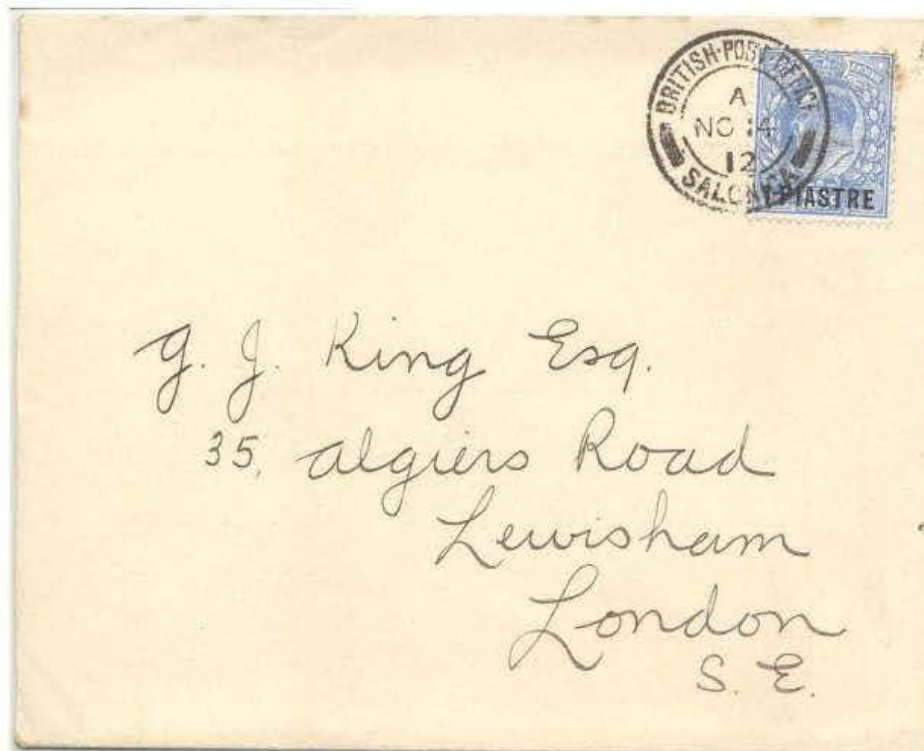 BRITISH·POST·OFFICE
A
NO 14
12
SALONICA
1 PIASTRE
G. J. King Esq.
35, Algiers Road
Lewisham
London
S. E.